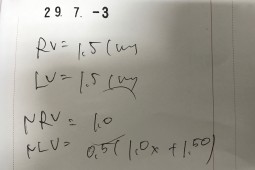 29. 7. -3
RV = 1.5 (
LV = 1.5 (
NRV = 1.0
NLV = 0.5 ( 1.0x + 1.50)